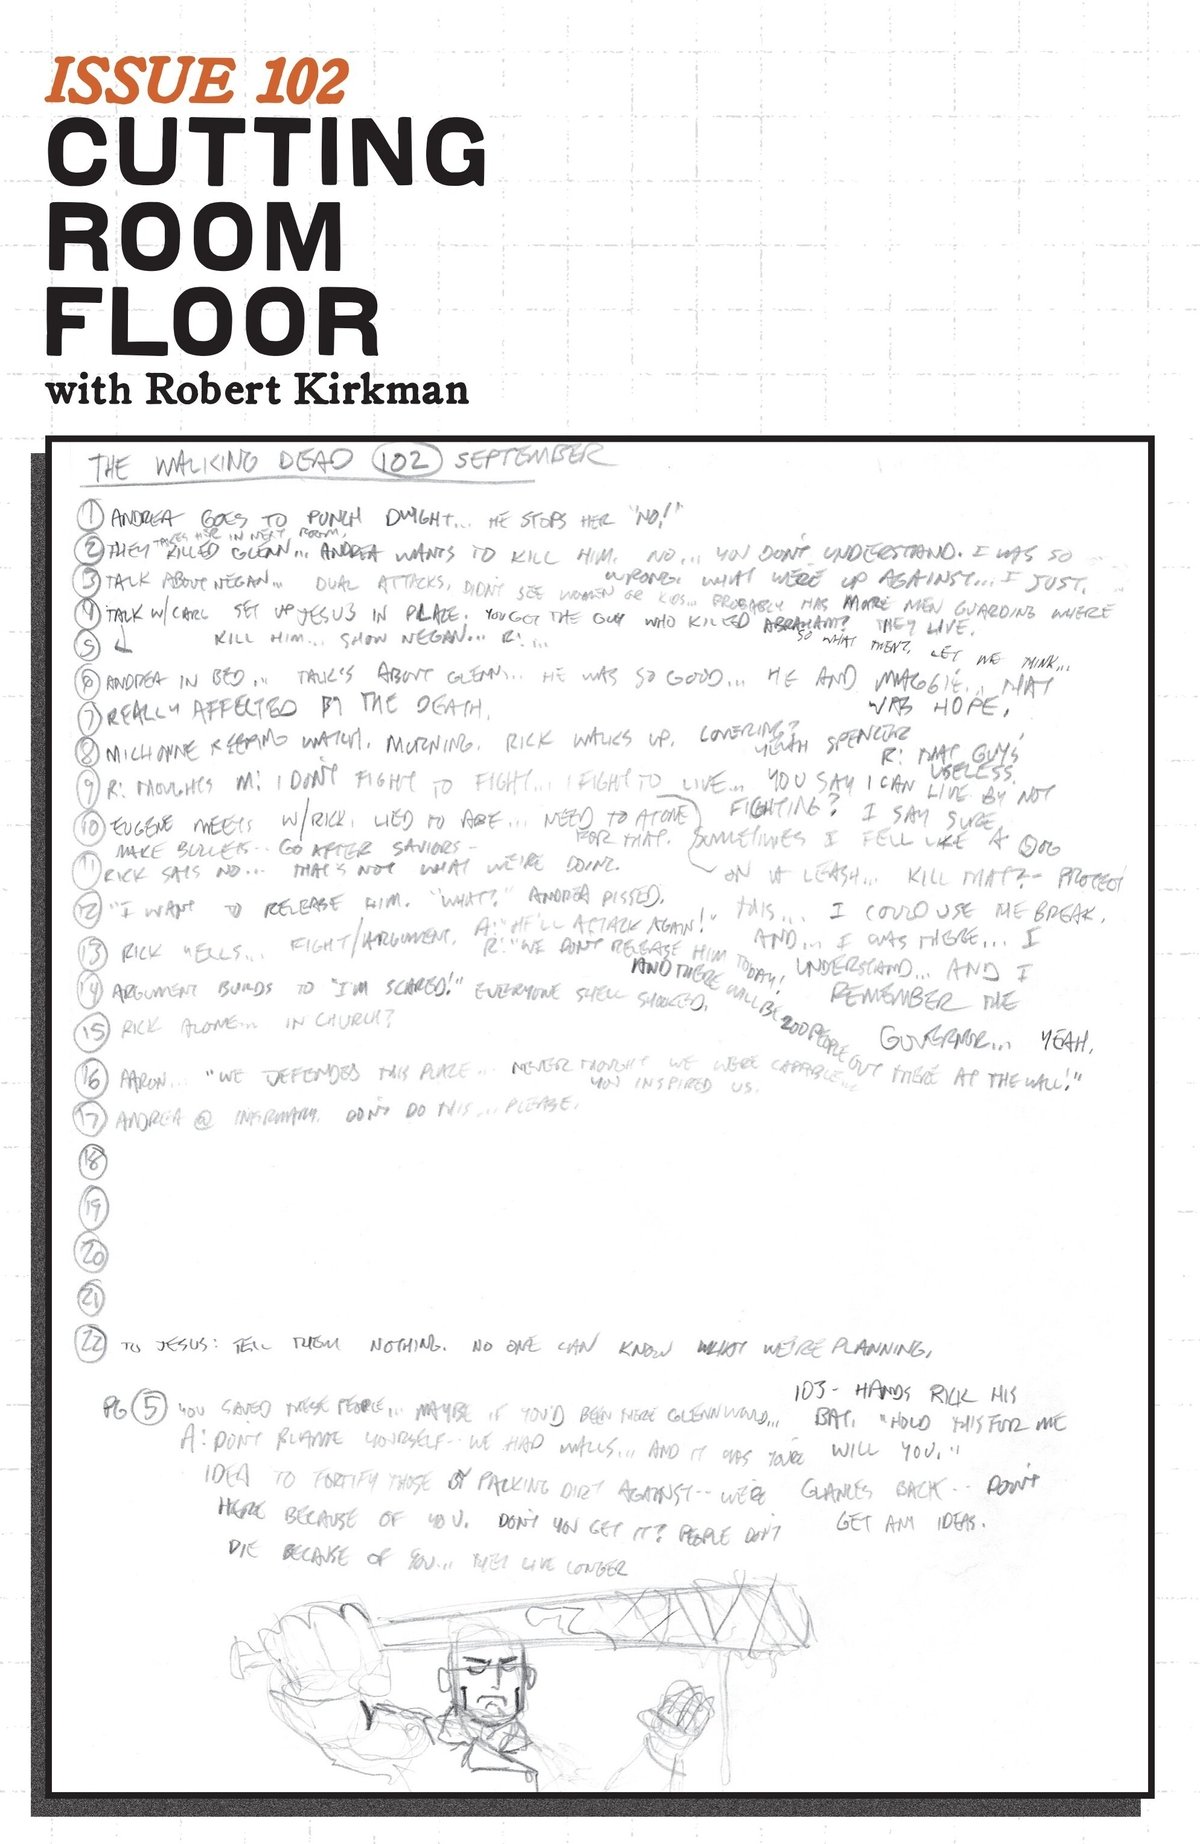 ISSUE 102
CUTTING
ROOM
FLOOR
with Robert Kirkman
THE WALKING DEAD 102 SEPTEMBER
1 ANDREA GOES TO PUNCH DWIGHT... HE STOPS HER "NO!"
TAKES HER IN NEXT ROOM.
2 THEY KILLED GLENN... ANDREA WANTS TO KILL HIM. NO... YOU DON'T UNDERSTAND. I WAS SO
WRONG. WHAT WE'RE UP AGAINST... I JUST.
3 TALK ABOUT NEGAN... DUAL ATTACKS, DIDN'T SEE WOMEN OR KIDS... PROBABLY HAS MORE MEN GUARDING WHERE
THEY LIVE.
4 TALK W/CARL SET UP JESUS IN PLACE. YOU GOT THE GUY WHO KILLED ABRAHAM?
SO WHAT THEN? LET ME THINK...
5 KILL HIM... SHOW NEGAN... R: ...
6 ANDREA IN BED... TALK'S ABOUT GLENN... HE WAS SO GOOD... HE AND MAGGIE... THAT
WAS HOPE.
7 REALLY AFFECTED BY THE DEATH.
8 MICHONNE KEEPING WATCH. MORNING. RICK WALKS UP. COVERING?
YEAH SPENCER
R: THAT GUYS
USELESS.
9 R: THOUGHTS M: I DON'T FIGHT TO FIGHT... I FIGHT TO LIVE... YOU SAY I CAN LIVE BY NOT
FIGHTING? I SAY SURE.
SOMETIMES I FELL LIKE A DOG
ON A LEASH... KILL THAT? - PROTECT
THIS... I COULD USE THE BREAK.
AND... I WAS THERE... I
UNDERSTAND... AND I
REMEMBER THE
GOVERNOR... YEAH.
10 EUGENE MEETS W/RICK. LIED TO ABE... NEED TO ATONE
FOR THAT.
MAKE BULLETS-- GO AFTER SAVIORS -
11 RICK SAYS NO... THAT'S NOT WHAT WE'RE DOING.
12 "I WANT TO RELEASE HIM. "WHAT?" ANDREA PISSED.
13 RICK YELLS... FIGHT/ARGUMENT. A: "HE'LL ATTACK AGAIN!"
R: "WE DON'T RELEASE HIM TODAY!
AND THERE WILL BE 200 PEOPLE OUT THERE AT THE WALL!"
14 ARGUMENT BUILDS TO "I'M SCARED!" EVERYONE SHELL SHOCKED.
15 RICK ALONE... IN CHURCH?
16 AARON... "WE DEFENDED THIS PLACE... NEVER THOUGHT WE WERE CAPABLE...
YOU INSPIRED US.
17 ANDREA @ INFIRMARY. DON'T DO THIS... PLEASE.
18
19
20
21
22 TO JESUS: TELL THEM NOTHING. NO ONE CAN KNOW WHAT WE'RE PLANNING.
PG 5 YOU SAVED THESE PEOPLE... MAYBE IF YOU'D BEEN THERE GLENN WOULD...
A: DON'T BLAME YOURSELF-- WE HAD WALLS... AND IT WAS YOUR
IDEA TO FORTIFY THOSE BY PACKING DIRT AGAINST-- WE'RE
HERE BECAUSE OF YOU. DON'T YOU GET IT? PEOPLE DON'T
DIE BECAUSE OF YOU... THEY LIVE LONGER
103- HANDS RICK HIS
BAT. "HOLD THIS FOR ME
WILL YOU."
GLANCES BACK-- DON'T
GET ANY IDEAS.